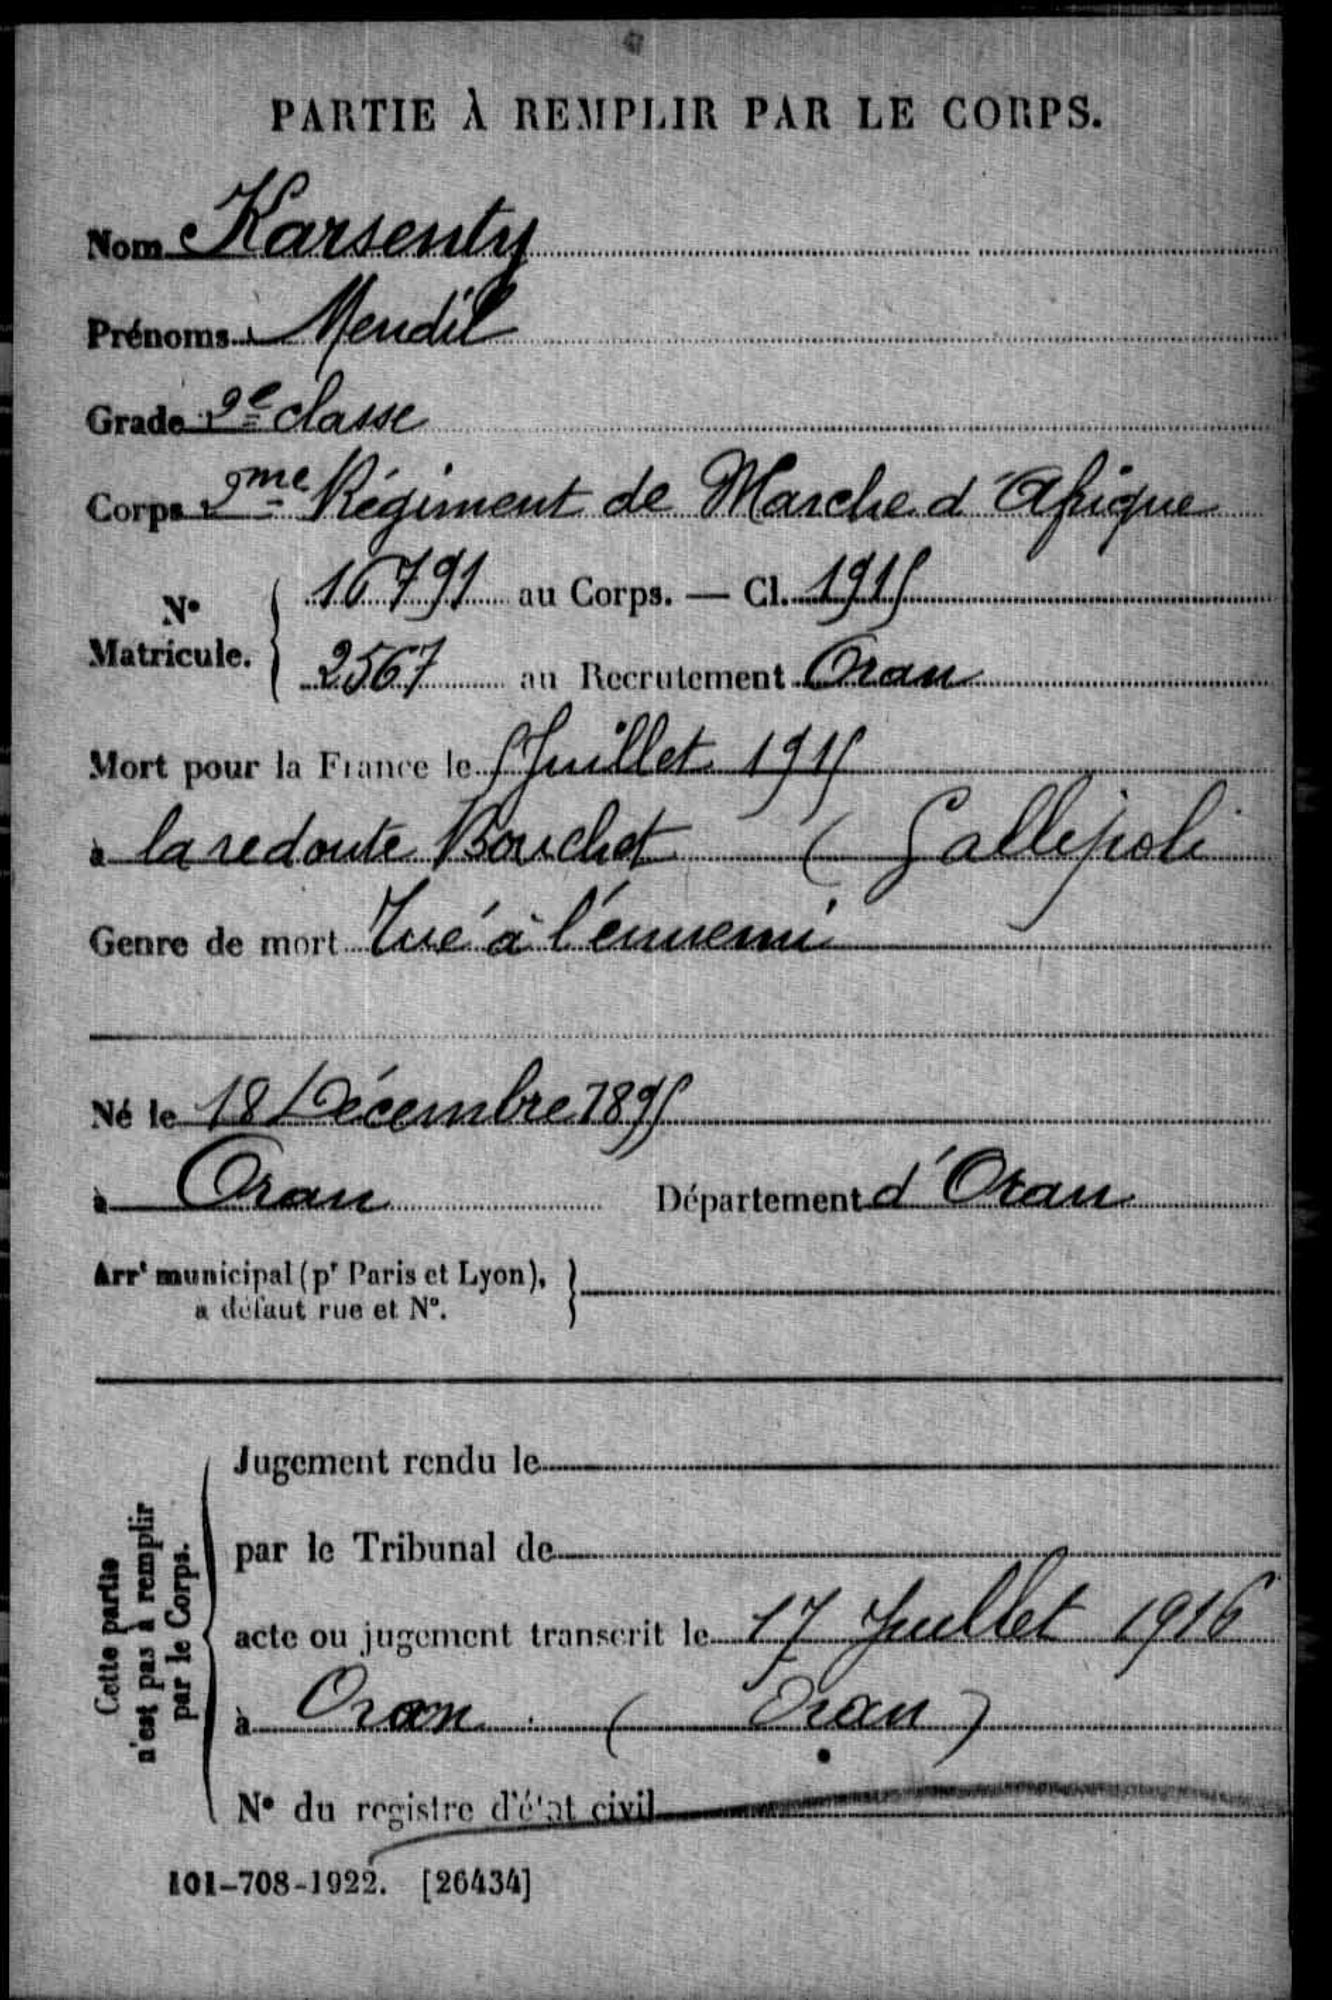 PARTIE À REMPLIR PAR LE CORPS.
Nom Karsenty
Prénoms Mendil
Grade 2e classe
Corps 2me Régiment de Marche d'Afrique
N° Matricule. 16791 au Corps. — Cl. 1915
2567 au Recrutement Oran
Mort pour la France le 5 Juillet 1915
à la redoute Bouchet ( Gallepoli
Genre de mort Tué à l'ennemi
Né le 18 Décembre 1895
à Oran Département d'Oran
Arrt municipal (pr Paris et Lyon),
à défaut rue et N°.
Cette partie
n'est pas à remplir
par le Corps.
Jugement rendu le
par le Tribunal de
acte ou jugement transcrit le 17 Juillet 1916
à Oran ( Oran )
N° du registre d'état civil
101-708-1922. [26434]